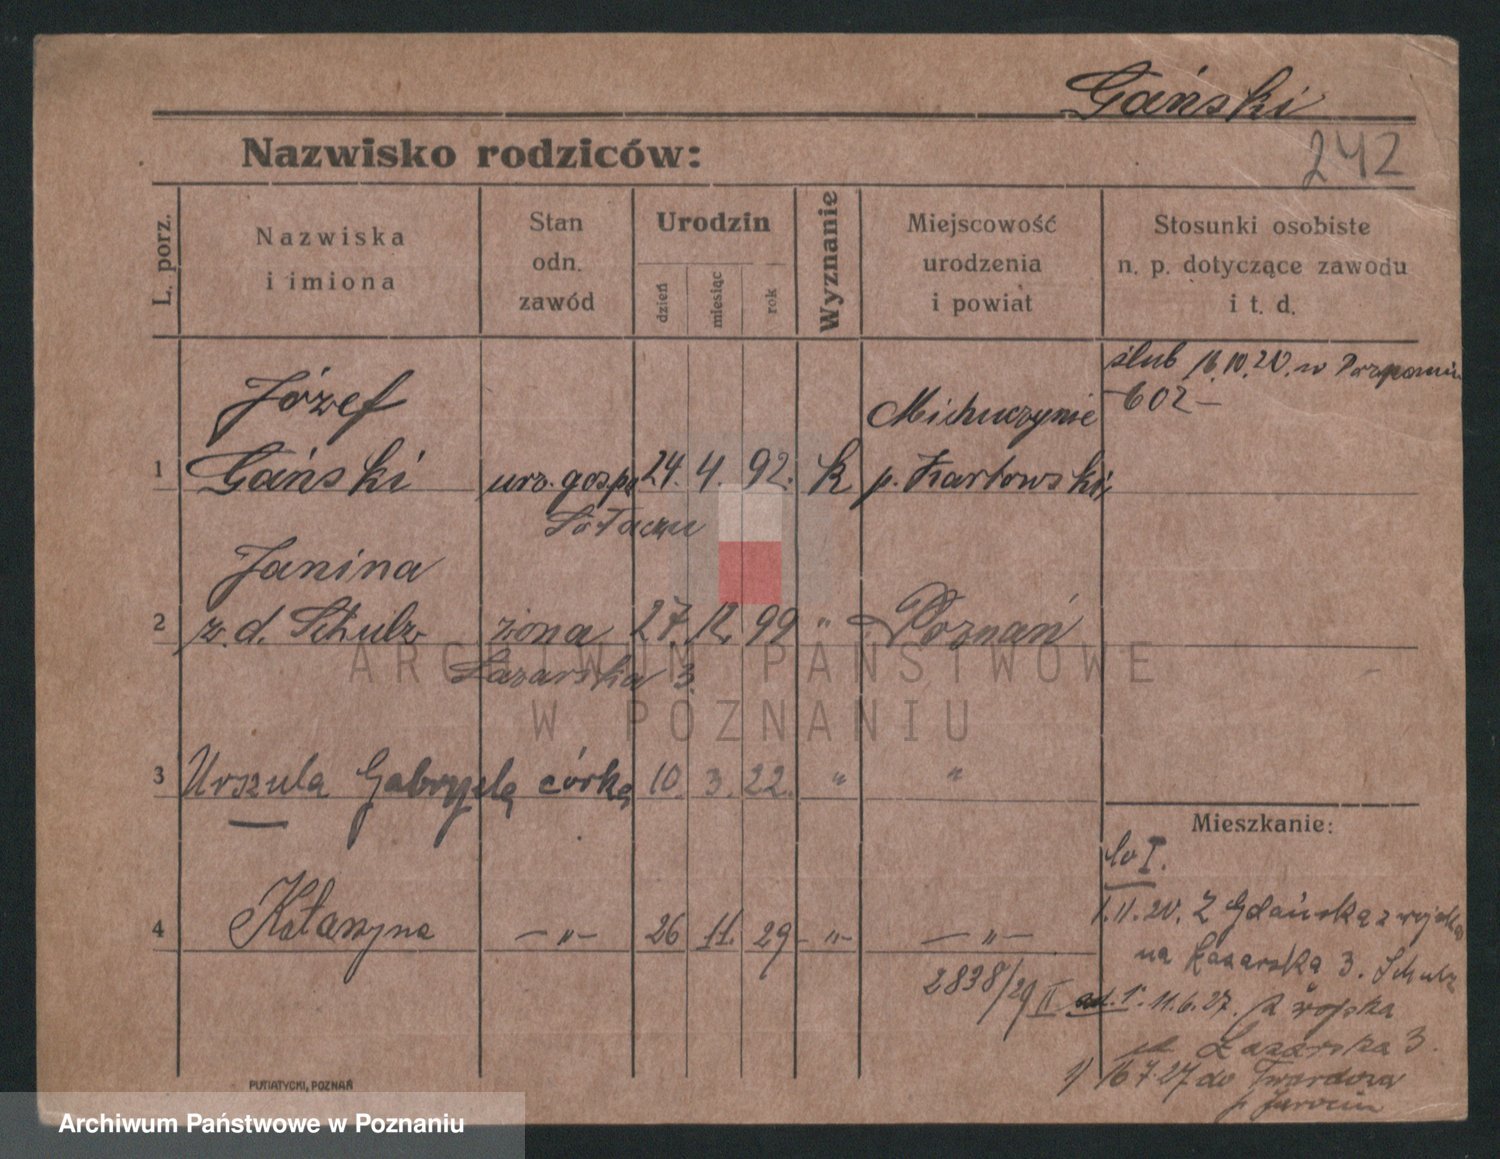 Gański
242
Nazwisko rodziców:
L. porz.
Nazwiska
i imiona
Stan
odn.
zawód
Urodzin
dzień
miesiąc
rok
Wyznanie
Miejscowość
urodzenia
i powiat
Stosunki osobiste
n. p. dotyczące zawodu
i t. d.
ślub 16.10.20. w Poznaniu
602 —
Józef
Michuczynie
1 Gański urz. gosp. 24. 4. 92. k p. Kartowski
Sołaczu
Janina
2 z. d. Schulz żona 27. 12. 99 " Poznań
Łazarska 3.
3 Urszula Gabryela córka 10. 3. 22. " "
Mieszkanie:
4 Katarzyna — " — 26 11. 29 — " — — " —
2838/29 II
1.11.20. Z Gdańska z wojska
na Łazarska 3. Schulz
ad. 1. 11.6.27. Z wojska
Łazarska 3.
1) 16.7.27 do Twardowa
p. Jarocin
PUTIATYCKI, POZNAŃ
ARCHIWUM PAŃSTWOWE
W POZNANIU
Archiwum Państwowe w Poznaniu